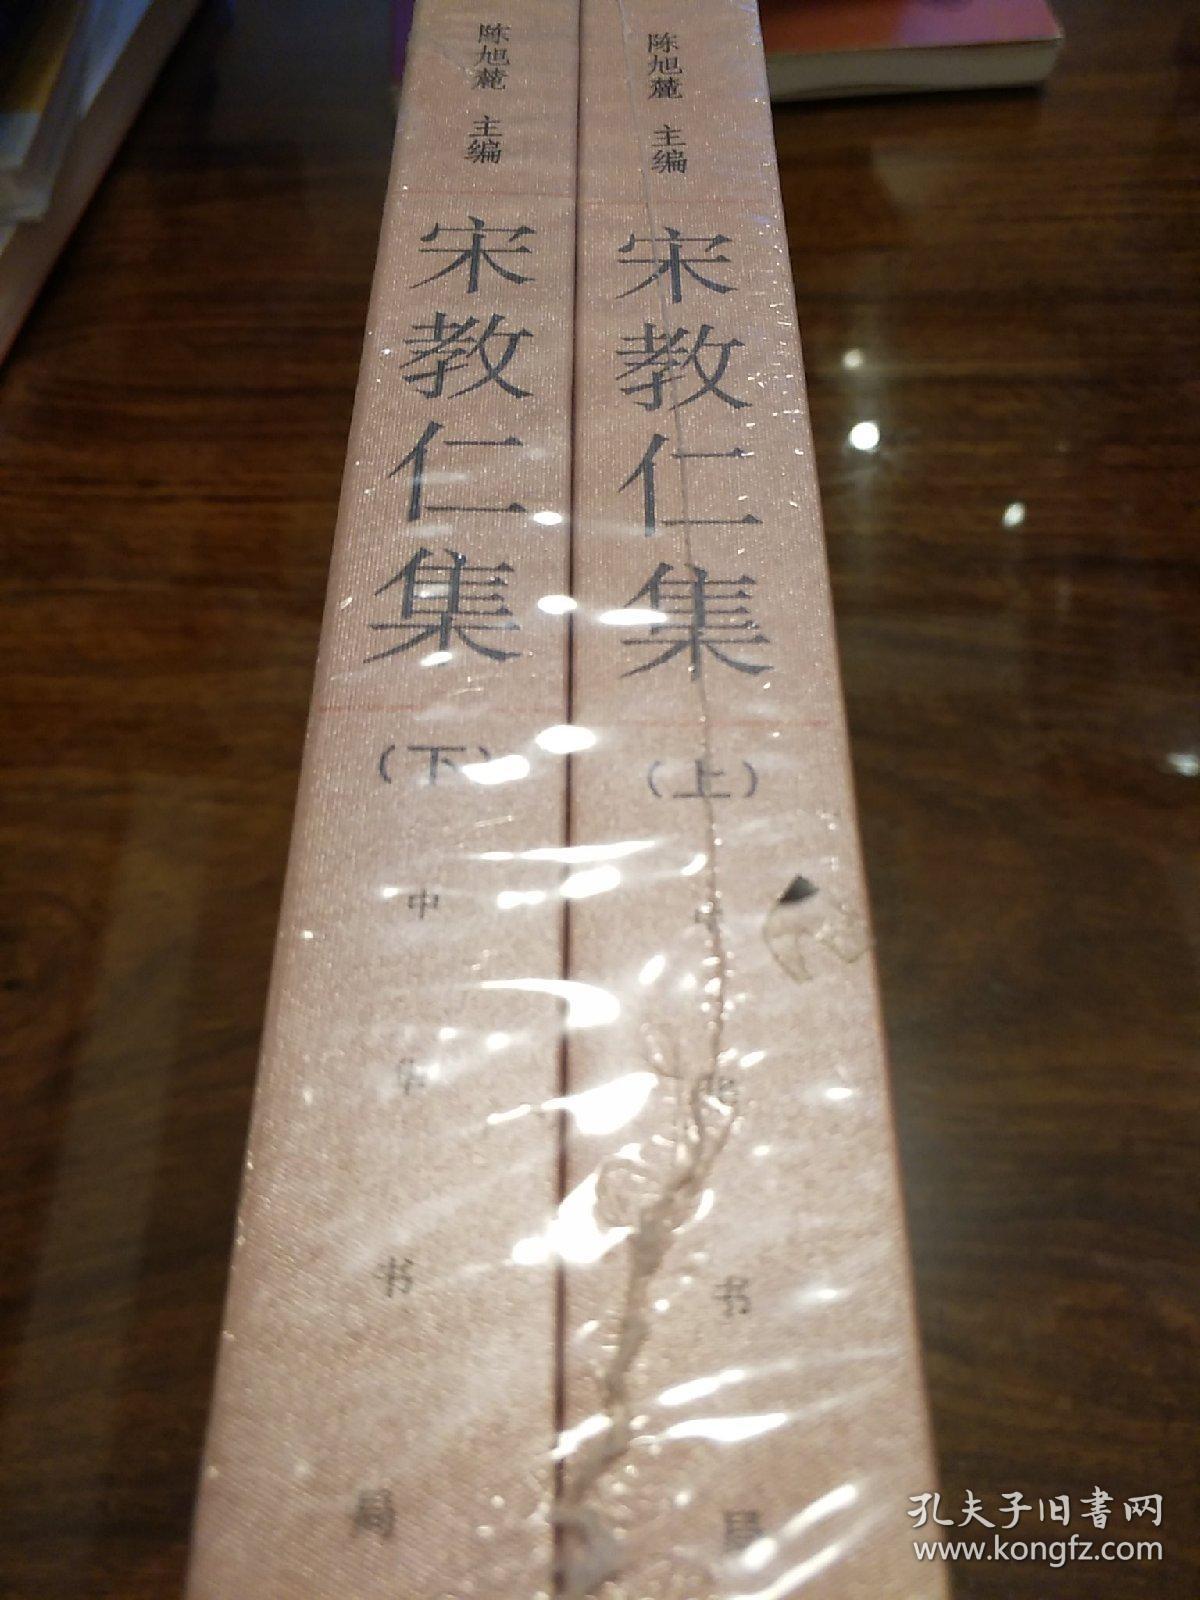 陈旭麓 主编
宋教仁集
（下）
中华书局
陈旭麓 主编
宋教仁集
（上）
中华书局
孔夫子旧書网
www.kongfz.com